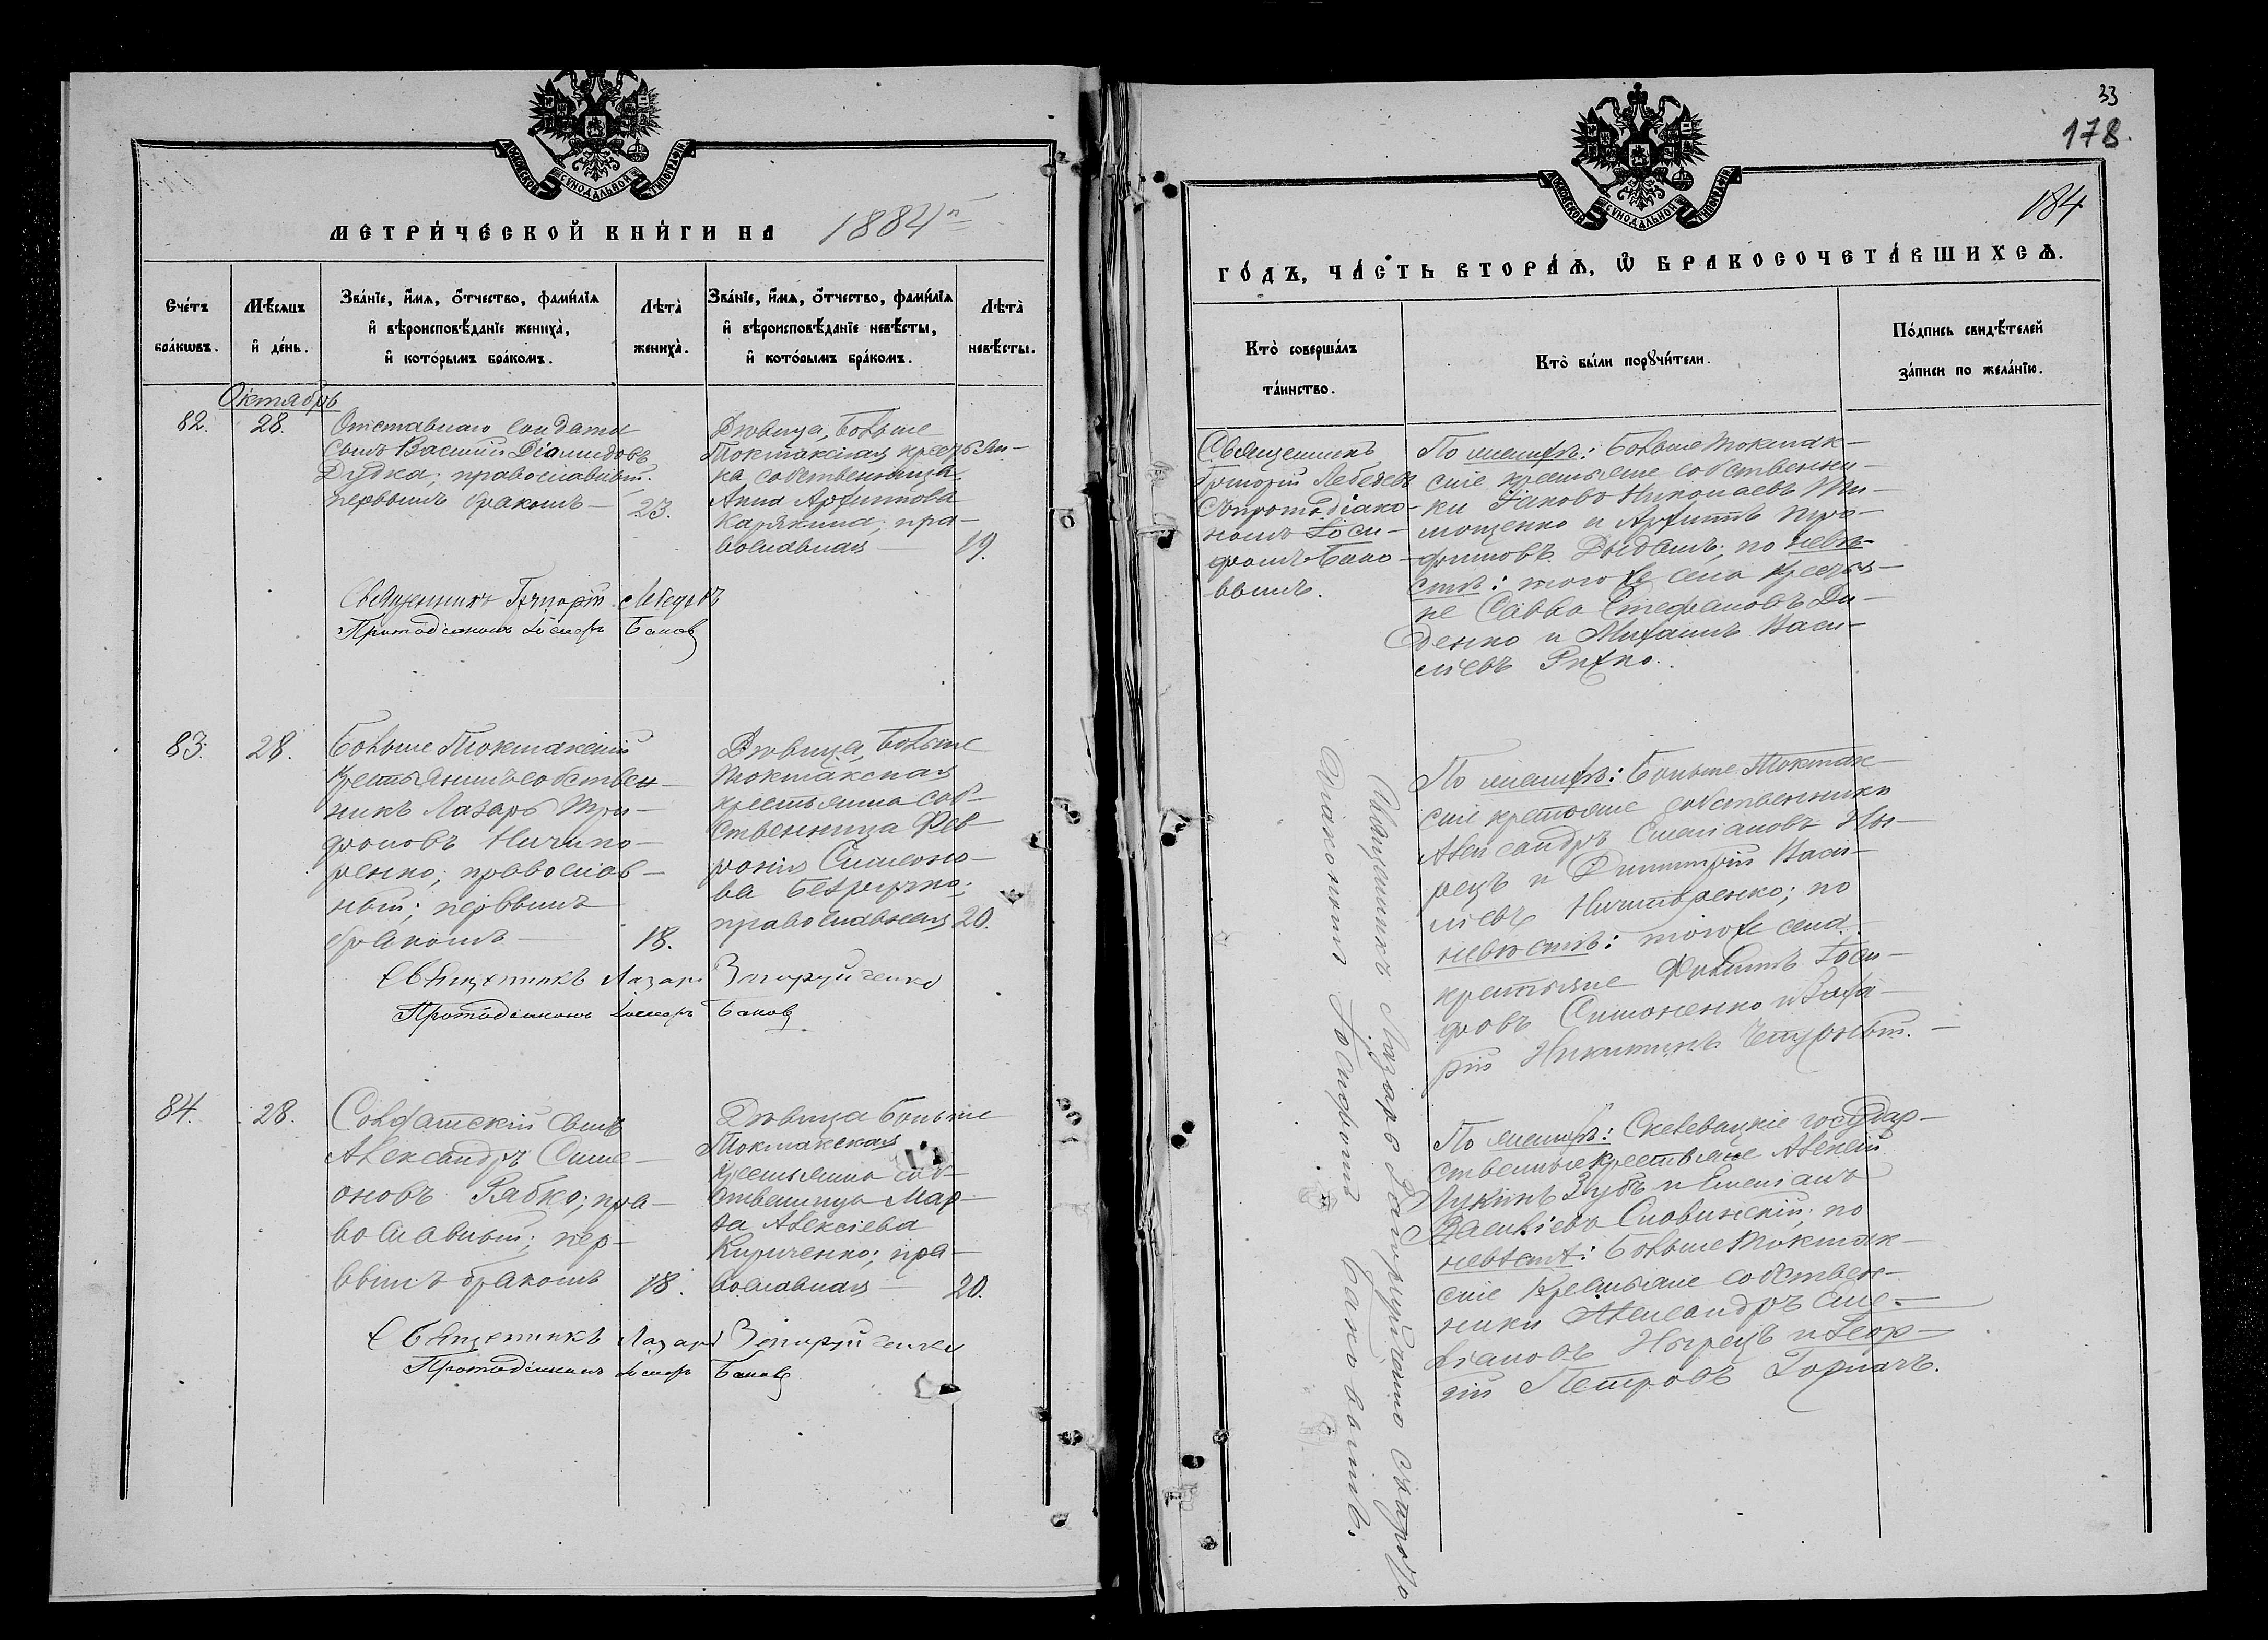 МОСКОВСКОЙ СѴНОДАЛЬНОЙ ТИПОГРАФІИ
МЕТРИ́ЧЕСКОЙ КНИ́ГИ НА 1884й
Сче́тъ бра́кѡвъ.
Мѣ́сяцъ и де́нь.
Зва́нїе, и҆́мѧ, ѻ҆́тчество, фами́лїѧ
и҆ вѣроисповѣ́данїе жениха̀,
и҆ кото́рымъ бра́комъ.
Лѣта̀ жениха̀.
Зва́нїе, и҆́мѧ, ѻ҆́тчество, фами́лїѧ
и҆ вѣроисповѣ́данїе невѣ́сты,
и҆ кото́рымъ бра́комъ.
Лѣта̀ невѣ́сты.
Октябрь
82.
28.
Отставнаго солдата
сынъ Василій Діомидовъ
Дудка; православный.
первымъ бракомъ —
23.
Дѣвица, Больше
Токмакская крестьян-
ка собственница
Анна Архипова
Карякина; пра-
вославная —
19.
Священникъ Григорій Лебедевъ
Протодіаконъ Іосифъ Баковъ
83.
28.
Больше Токмакскій
крестьянинъ собствен-
никъ Лазарь Три-
фоновъ Ничипо-
ренко; православ-
ный; первымъ
бракомъ —
18.
Дѣвица, Больше
Токмакская
крестьянка соб-
ственница Фев-
ронія Симеоно-
ва Безручко;
православная
20.
Священникъ Лазарь Запируйченко
Протодіаконъ Іосифъ Баковъ
84.
28.
Солдатскій сынъ
Александръ Симе-
оновъ Рябко; пра-
вославный; пер-
вымъ бракомъ
18.
Дѣвица Больше
Токмакская
крестьянка соб-
ственница Мар-
ѳа Алексіева
Кириченко; пра-
вославная —
20.
Священникъ Лазарь Запируйченко
Протодіаконъ Іосифъ Баковъ
33
178.
184
МОСКОВСКОЙ СѴНОДАЛЬНОЙ ТИПОГРАФІИ
ГО́ДЪ, ЧА́СТЬ ВТОРА́Ѧ, Ѡ҆ БРАКОСОЧЕТА́ВШИХСѦ.
Кто̀ соверша́лъ
та́инство.
Кто̀ бы́ли порꙋчи́тели.
По́дпись свидѣ́телей
за́писи по жела́нїю.
Священникъ
Григорій Лебедевъ
съ протодіако-
номъ Іоси-
фомъ Бако-
вымъ.
По женихѣ: Больше Токмак-
скіе крестьяне собственни-
ки Іаковъ Николаевъ Ти-
мощенко и Архиппъ Тро-
фимовъ Дыдашъ; по невѣ-
стѣ: того же села крестья-
не Савва Стефановъ Ди-
денко и Михаилъ Васи-
ліевъ Рихко.
Священникъ Лазарь Запируйченко съ прото
діакономъ Іосифомъ Баковымъ.
По женихѣ: Больше Токмак-
скіе крестьяне собственники
Александръ Емеліановъ Ны-
рецъ и Димитрій Васи-
ліевъ Ничипоренко; по
невѣстѣ: того же села
крестьяне Филиппъ Іоси-
фовъ Симоненко и Заха-
рій Никитинъ Чепурный. —
По женихѣ: Скелевацкіе государ-
ственные крестьяне Алексій
Лукинъ Зубъ и Емеліанъ
Василіевъ Словинскій; по
невѣстѣ: Больше Токмак-
скіе крестьяне собствен-
ники Александръ Еме-
ліановъ Нырецъ и Геор-
гій Петровъ Горпачъ.